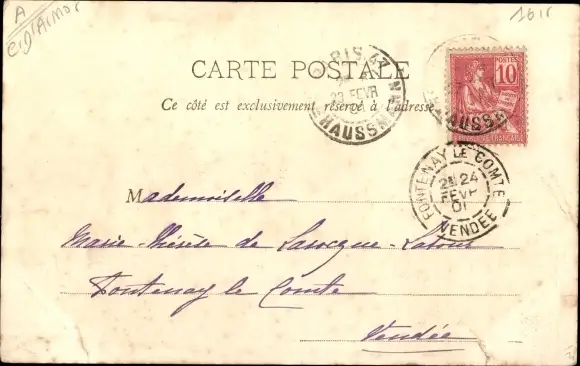 A
16 ir
CARTE POSTALE
Ce côté est exclusivement réservé à l'adresse
PARIS 47
23 FEVR
HAUSSMANN
POSTES
10
HAUSSMA
FRANÇAISE
FONTENAY LE COMTE
2E 24
FEVR
01
VENDÉE
Mademoiselle
Marie-Thérèse de Larocque-Latour
Fontenay le Comte
Vendée